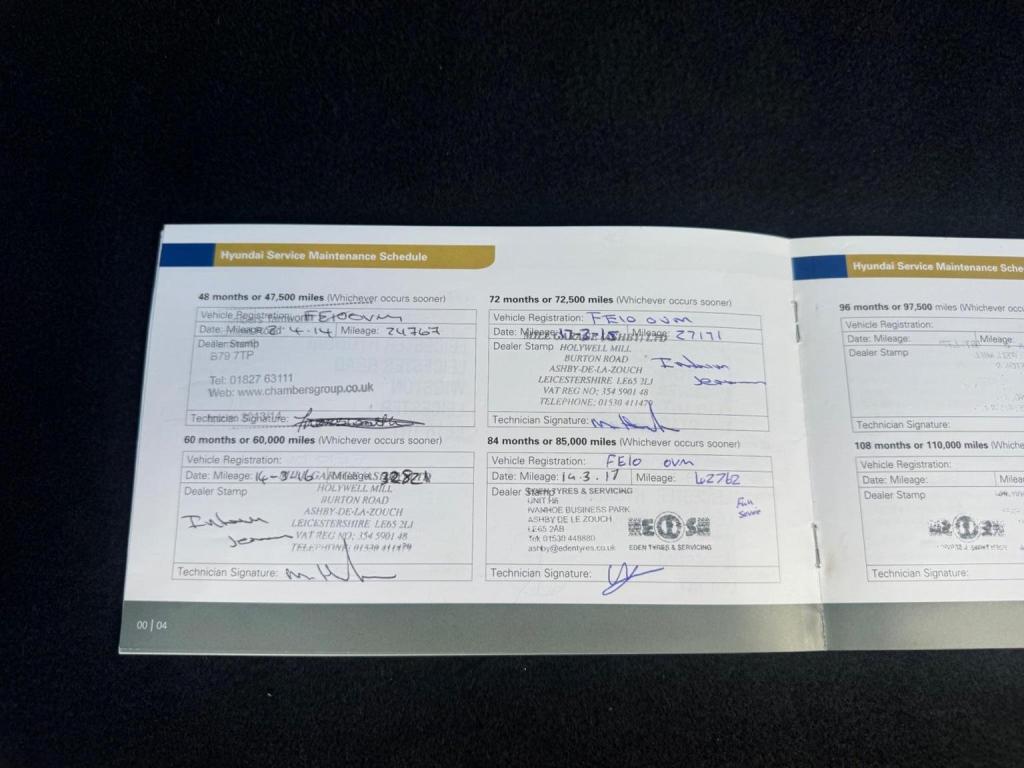 Hyundai Service Maintenance Schedule
48 months or 47,500 miles (Whichever occurs sooner)
Vehicle Registration: FE10 OVM
Date: 3.4.14 Mileage: 24767
Dealer Stamp
B79 7TP
Tel: 01827 63111
Web: www.chambersgroup.co.uk
Technician Signature:
60 months or 60,000 miles (Whichever occurs sooner)
Vehicle Registration:
Date: Mileage:
Dealer Stamp
HOLYWELL MILL
BURTON ROAD
ASHBY-DE-LA-ZOUCH
LEICESTERSHIRE LE65 2LJ
VAT REG NO; 354 5901 48
TELEPHONE; 01530 411479
Technician Signature:
72 months or 72,500 miles (Whichever occurs sooner)
Vehicle Registration: FE10 OVM
Date: Mileage: 27171
Dealer Stamp
HOLYWELL MILL
BURTON ROAD
ASHBY-DE-LA-ZOUCH
LEICESTERSHIRE LE65 2LJ
VAT REG NO; 354 5901 48
TELEPHONE; 01530 411479
Technician Signature:
84 months or 85,000 miles (Whichever occurs sooner)
Vehicle Registration: FE10 OVM
Date: 14.3.17 Mileage: 42762
Dealer Stamp
EDEN TYRES & SERVICING
UNIT H6
IVANHOE BUSINESS PARK
ASHBY DE LE ZOUCH
LE65 2AB
Tel: 01530 448880
ashby@edentyres.co.uk
EDEN TYRES & SERVICING
Full
Service
Technician Signature:
00 | 04
Hyundai Service Maintenance
96 months or 97,500 miles (Whichever
Vehicle Registration:
Date: Mileage:
Dealer Stamp
Technician Signature:
108 months or 110,000 miles
Vehicle Registration:
Date:
Dealer Stamp
Technician Signature: